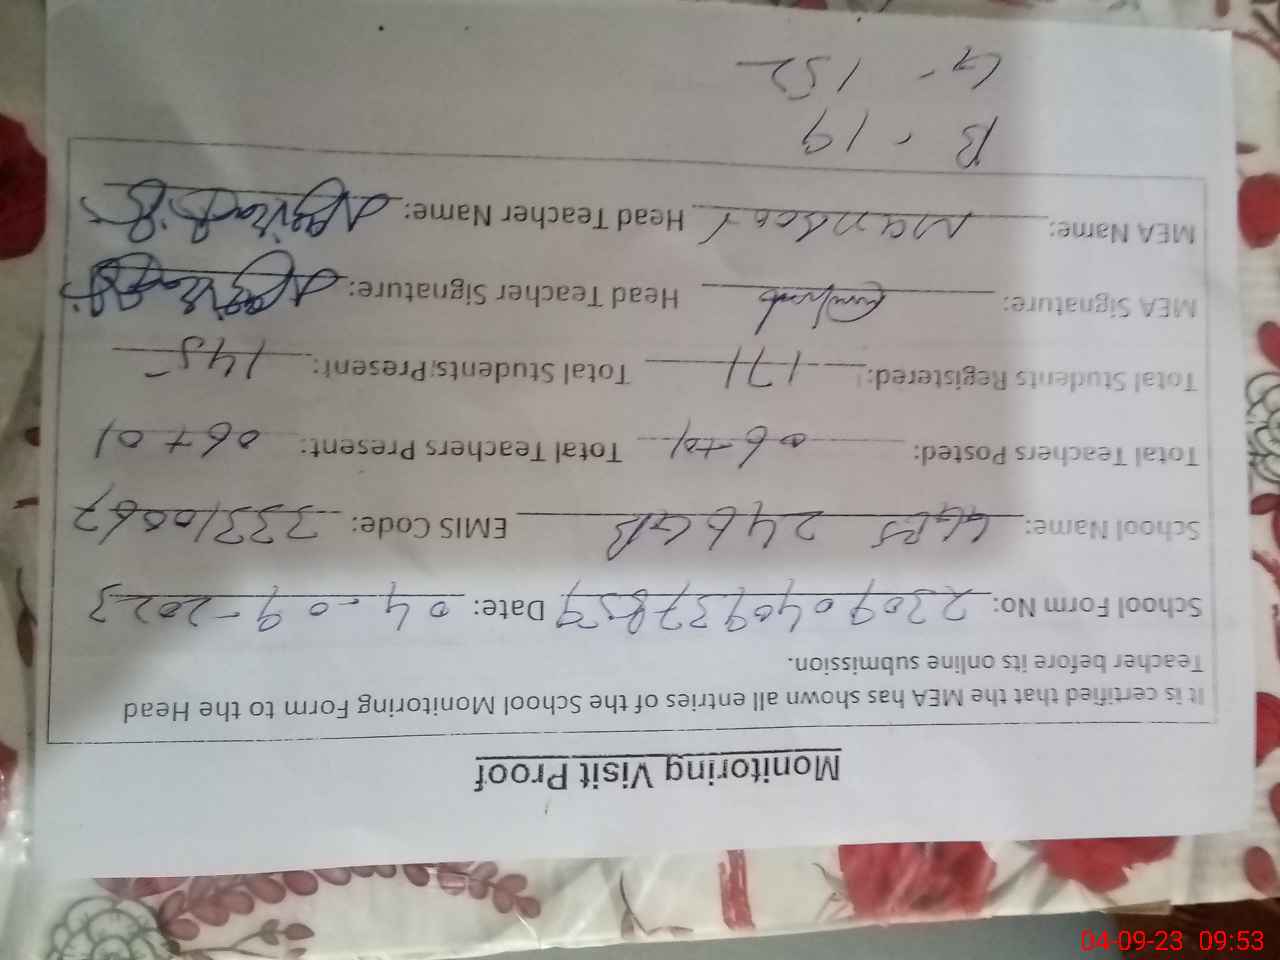 Monitoring Visit Proof
It is certified that the MEA has shown all entries of the School Monitoring Form to the Head
Teacher before its online submission.
School Form No: 2309040937859 Date: 04-09-2023
School Name: GGPS 246 GB EMIS Code: 33310067
Total Teachers Posted: 06+01 Total Teachers Present: 06+01
Total Students Registered: 171 Total Students Present: 145
MEA Signature: Head Teacher Signature:
MEA Name: Head Teacher Name:
B - 19
G - 152
04-09-23 09:53